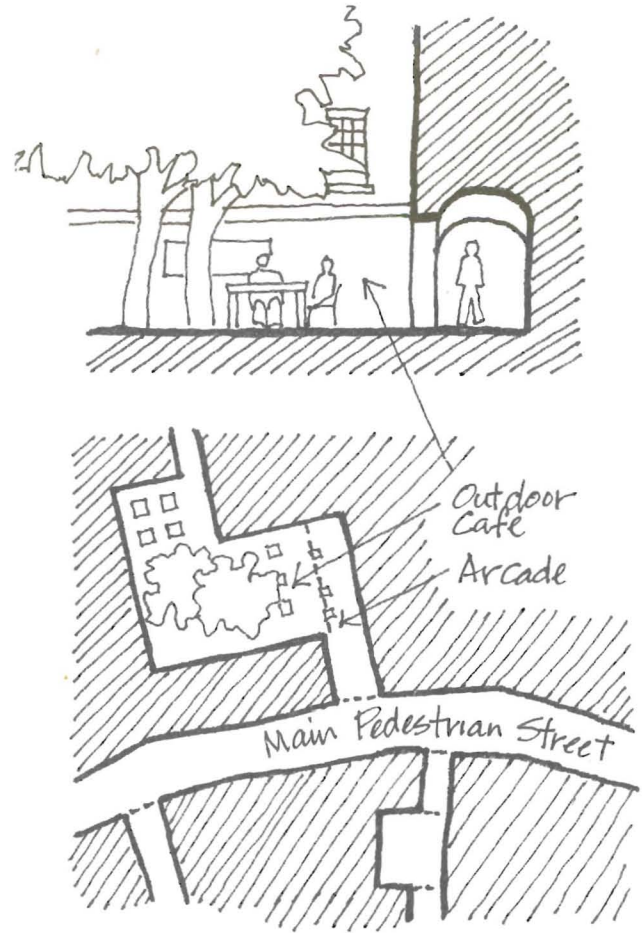 Outdoor
Café
Arcade
Main Pedestrian Street